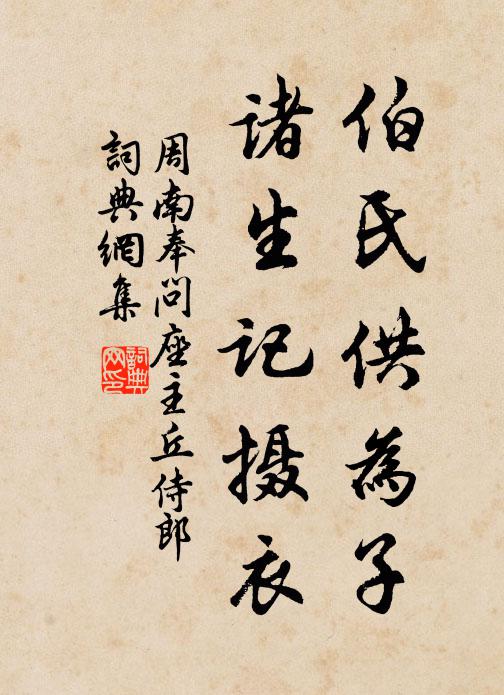 伯氏供為子
诸生记摄衣
周南奉问座主丘侍郎
詞典網集
詞典网印